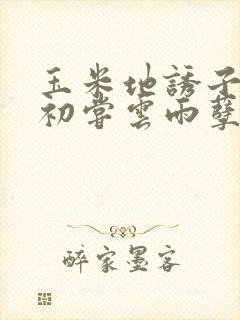 玉米地誘子
初嘗雲雨孽
醉家墨客